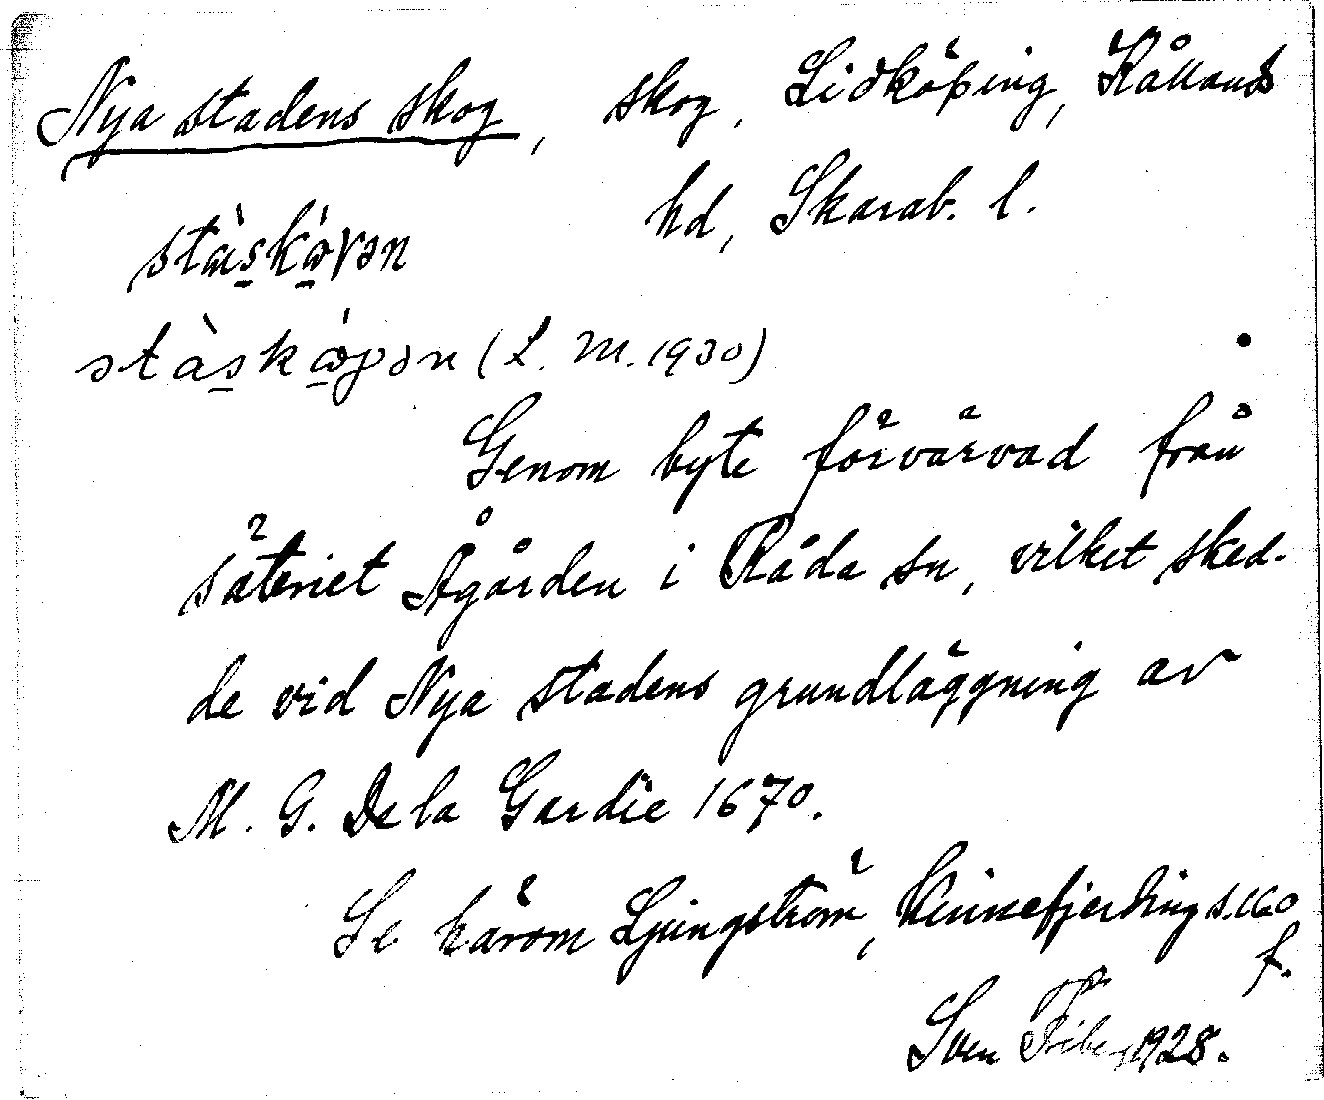 Nya stadens skog, skog, Lidköping, Kållands
hd, Skarab. l.
(L. M. 1930)
Genom byte förvärvad från
säteriet Ågården i Råda sn, vilket sked-
de vid Nya stadens grundläggning av
M. G. De la Gardie 1670.
Se härom Ljungström, Kinnefjerding s. 160
f.
Sven 1928.